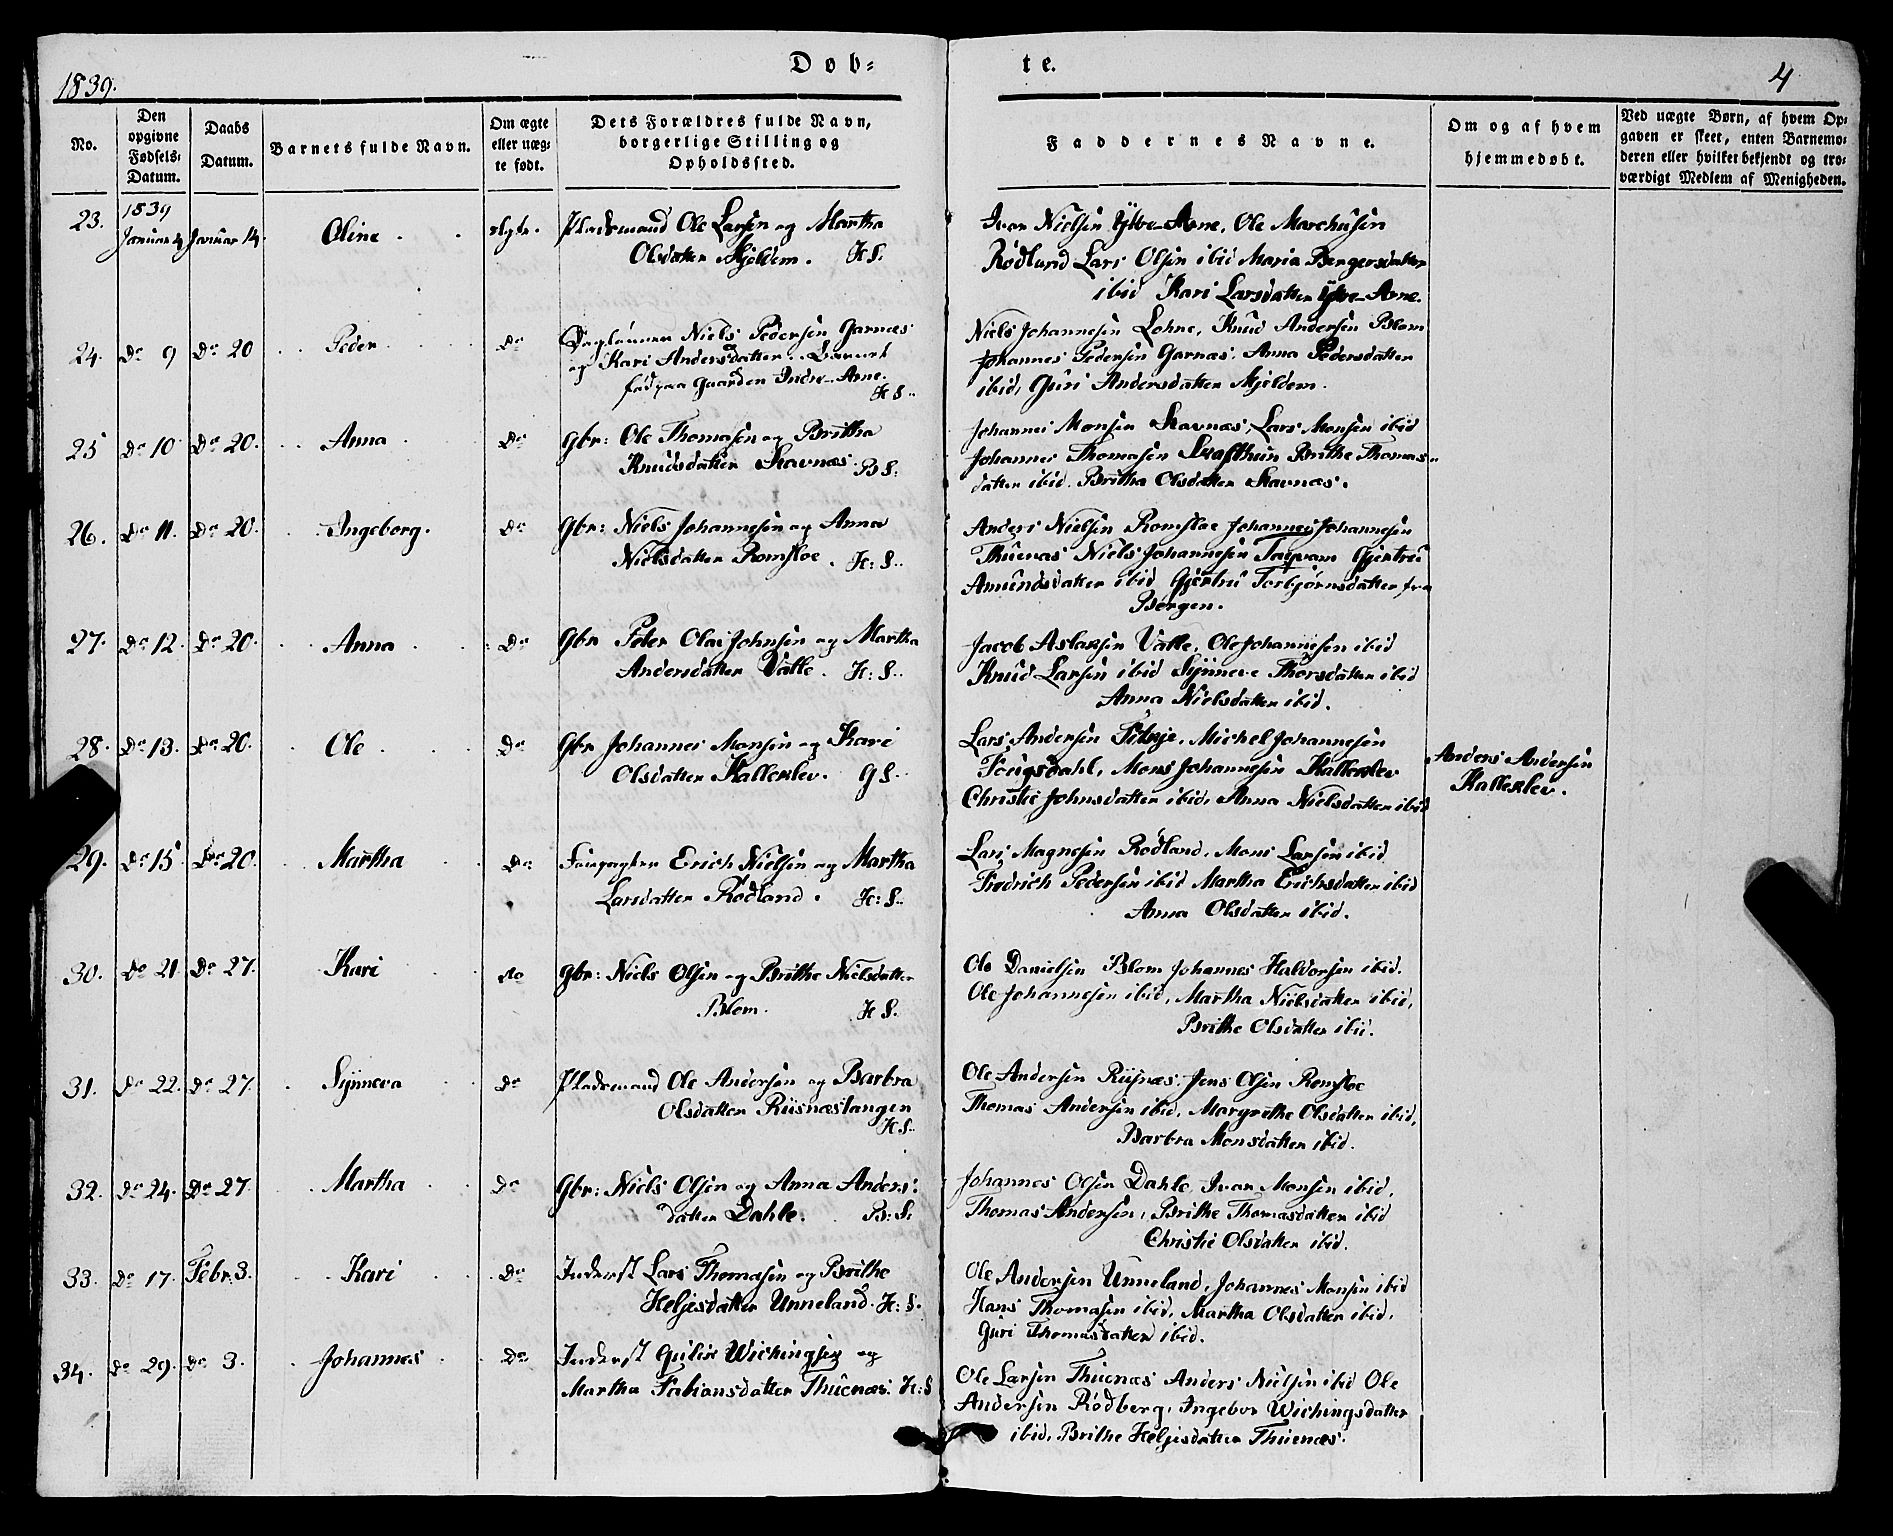 1839.
Døb-
te.
4
No.
Den opgivne Fødsels-Datum.
Daabs Datum.
Barnets fulde Navn.
Om ægte eller uægte født.
Dets Forældres fulde Navn, borgerlige Stilling og Opholdssted.
Faddernes Navne.
Om og af hvem hjemmedøbt.
Ved uægte Børn, af hvem Opgaven er skeet, enten Barnemoderen eller hvilket bekjendt og troværdigt Medlem af Menigheden.
23. 1839 Januar 4 Januar 14. Oline Ægte. Pladsmand Ole Larsen og Martha
Olsdatter Mjeldem. H S.
Ivar Nielsen Ytre-Arne, Ole Marchusen
Rødlund Lars Olsen ibid Maria Bergersdatter
ibid Kari Larsdatter Ytre-Arne.
24. Do 9 Do 20 Peder Do Daglønner Niels Pedersen Garnæs
og Kari Andersdatter. Barnet
fød paa Gaarden Indre-Arne.
H S.
Niels Johannesen Lohne, Knud Andersen Blom
Johannes Pedersen Garnæs, Anna Pedersdatter
ibid, Guri Andersdatter Mjeldem.
25 Do 10 Do 20. Anna Do Gbr: Ole Thomasen og Britha
Knudsdatter Stavnæs. B S.
Johannes Monsen Stavnæs Lars Monsen ibid
Johannes Thomasen Krafthun Brithe Thomas-
datter ibid. Britha Olsdatter Stavnæs.
26. Do 11. Do 20. Ingeborg. Do Gbr: Niels Johannesen og Anna
Nielsdatter Romsloe. H: S.
Anders Nielsen Romsloe Johannes Johannesen
Thuenæs Niels Johannesen Taqvam Gjertru
Amundsdatter ibid Gjertru Torbjørnsdatter fra
Bergen.
27. Do 12. Do 20. Anna Do Gbr Peter Olai Johnsen og Martha
Andersdatter Valle. H: S.
Jacob Aslaksen Valle, Ole Johannesen ibid
Knud Larsen ibid Synneve Thorsdatter ibid
Anna Nielsdatter ibid.
28. Do 13. Do 20. Ole Do Gbr Johannes Monsen og Kari
Olsdatter Kalleklev. G S.
Lars Andersen Titleje, Michel Johannesen
Fougsdahl, Mons Johannesen Kalleklev
Christie Johnsdatter ibid, Anna Nielsdatter ibid
Anders Andersen
Kalleklev.
29. Do 15 Do 20. Martha Do Forpagter Erich Nielsen og Martha
Larsdatter Rødland. H: S.
Lars Magnesen Rødland, Mons Larsen ibid
Fredrich Pedersen ibid Martha Erichsdatter ibid
Anna Olsdatter ibid.
30. Do 21 Do 27. Kari do Gbr: Niels Olsen og Brithe Nielsdatter
Blom. H S.
Ole Danielsen Blom Johannes Haldorsen ibid.
Ole Johannesen ibid, Martha Nielsdatter ibid,
Brithe Olsdatter ibid.
31. Do 22. Do 27. Synneva Do Pladsmand Ole Andersen og Barbra
Olsdatter Riisnæstangen
H S.
Ole Andersen Riisnæs, Jens Olsen Romsloe
Thomas Andersen ibid, Margrethe Olsdatter ibid,
Barbra Monsdatter ibid.
32. Do 24. Do 27 Martha Do Gbr: Niels Olsen og Anna Anders:
datter Dahle. B: S.
Johannes Olsen Dahle, Ivar Monsen ibid,
Thomas Andersen, Brithe Thomasdatter ibid
Christie Olsdatter ibid.
33. Do 17. Febr. 3. Kari Do Inderst Lars Thomasen og Brithe
Heljesdatter Unneland. H: S.
Ole Andersen Unneland, Johannes Monsen ibid
Hans Thomasen ibid, Martha Olsdatter ibid,
Guri Thomasdatter ibid.
34. Do 29. Do 3. Johannes Do Inderst Gulik Wichingsen og
Martha Fabiansdatter Thuenæs. H: S
Ole Larsen Thuenæs Anders Nielsen ibid Ole
Andersen Rødberg, Ingebor Wichingsdatter
ibid, Brithe Heljesdatter Thuenæs.